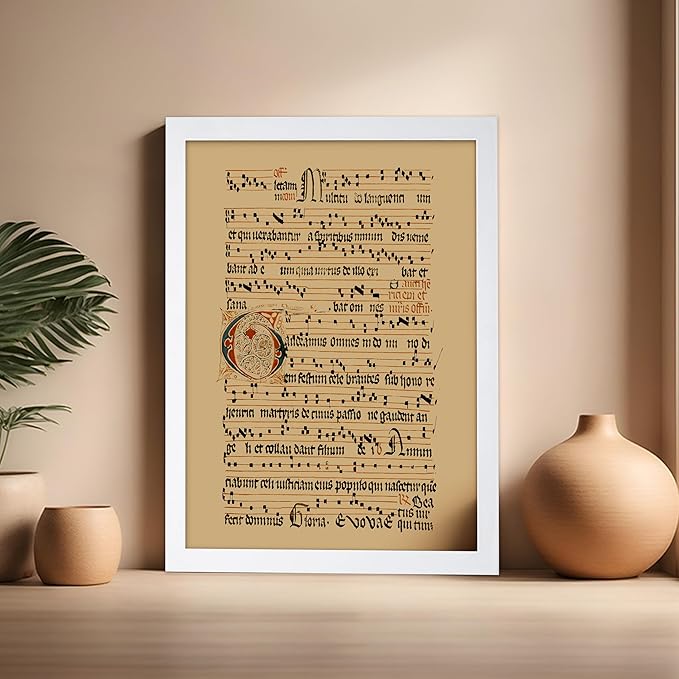 Off
letam Multitu do languenti um
m̄ om̄
et qui vexabantur a spiritibus immun dis venie
bant ad e um quia virtus de illo exi bat et
sana bat om nes
Gaudeamus omnes in do mi no di
em festum cele brantes sub hono re
henrici martyris de cuius passio ne gaudent an
ge li et collau dant filium de i
Annun
tiabunt celi iusticiam eius populo qui nascetur que
fecit dominus Gloria. EVOVAE
Bea
tus vir
qui tim